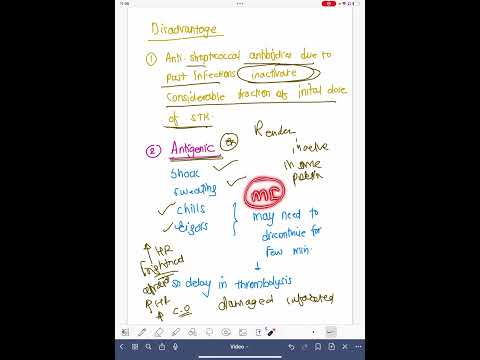 Disadvantage
① Anti-streptococcal antibodies due to
past infections inactivate
considerable fraction of initial dose
of STK.
② Antigenic
Render
inactive
in some
Shock
sweating
chills
Rigors
MC
may need to
discontinue for
few min.
↑ HR
so delay in thrombolysis
damaged infarcted
↑ C.O
Video